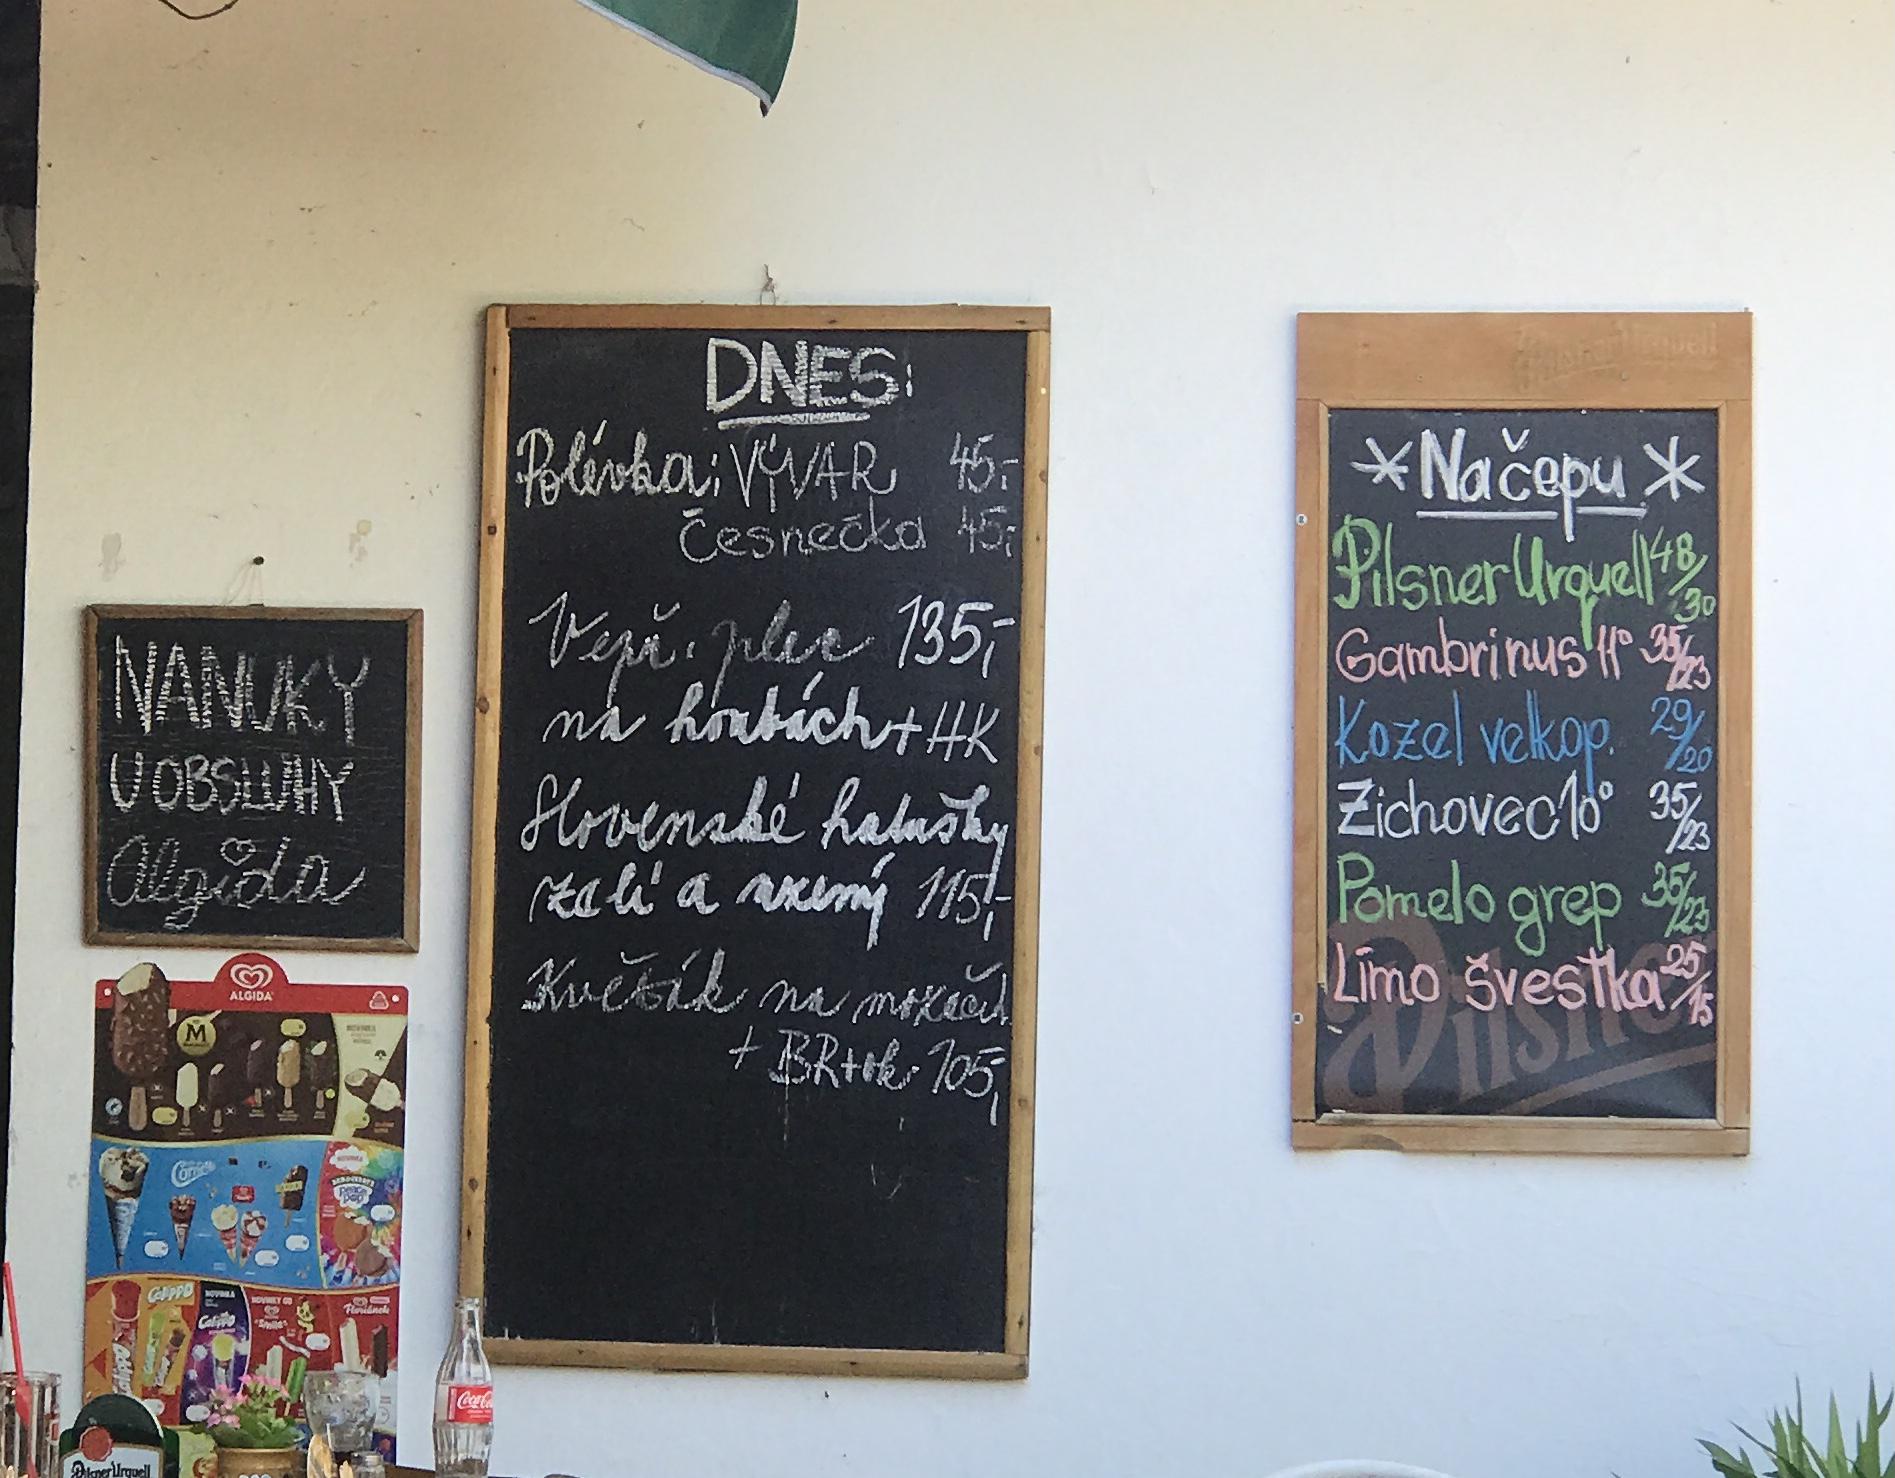 NANUKY
U OBSLUHY
Algida
ALGIDA
M
Calippo
Calippo
Coca-Cola
Pilsner Urquell
DNES:
Polévka: VÝVAR 45,-
Česnečka 45,-
Vepř. plec 135,-
na houbách + HK
Slovenské halušky
zelí a uzený 115,-
Květák na mozeček
+ BR+ok 105,-
Pilsner Urquell
*Načepu*
Pilsner Urquell 48/30
Gambrinus 11° 35/23
Kozel velkop. 29/20
Zichovec 10° 35/23
Pomelo grep 35/23
Límo švestka 25/15
Pilsner